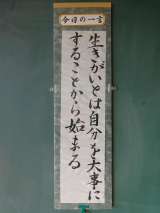 今日の一言
生きがいとは自分を大事に
することから始まる